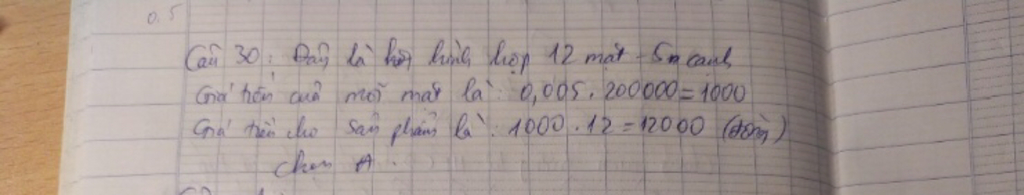 0,5
Câu 30: Đây là hình hộp 12 mặt - 5 cạnh
Giá tiền của mỗi mặt là: 0,005 . 200000 = 1000
Giá tiền cho sản phẩm là: 1000 . 12 = 12000 (đồng)
chọn A.